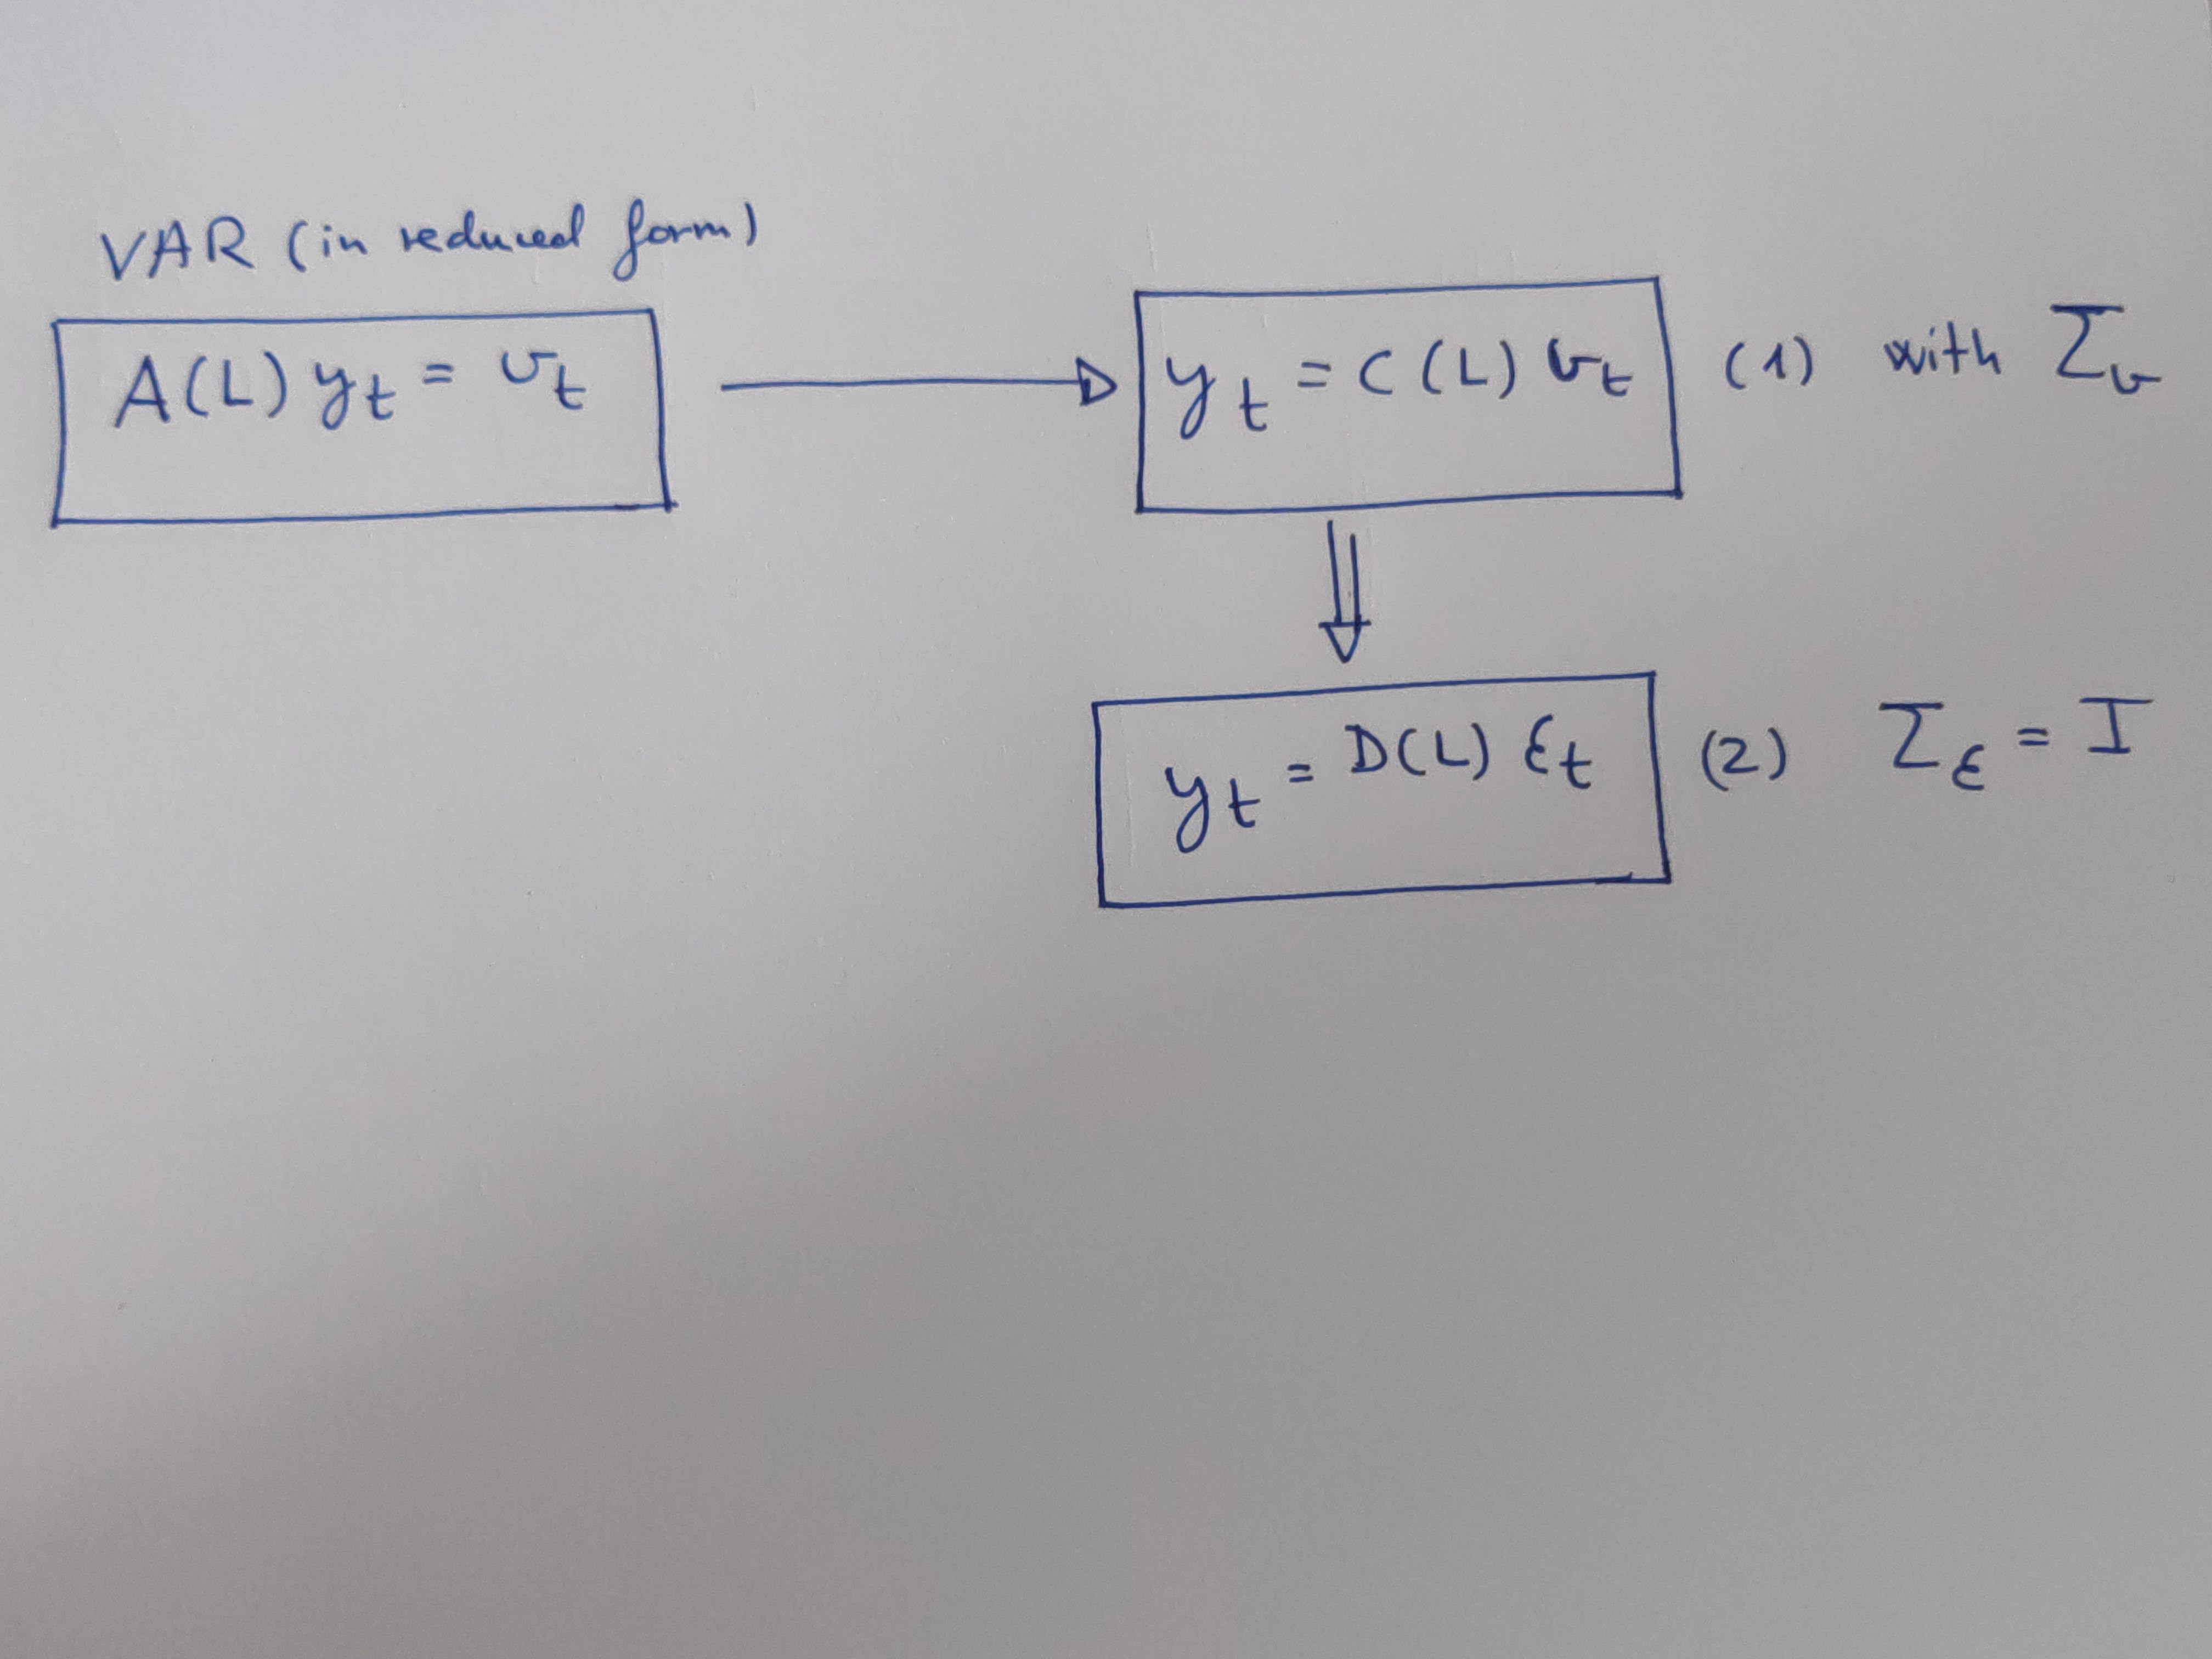 VAR (in reduced form)
A(L) yt = υt
yt = C(L) υt (1) with Συ
yt = D(L) εt (2) Σε = I